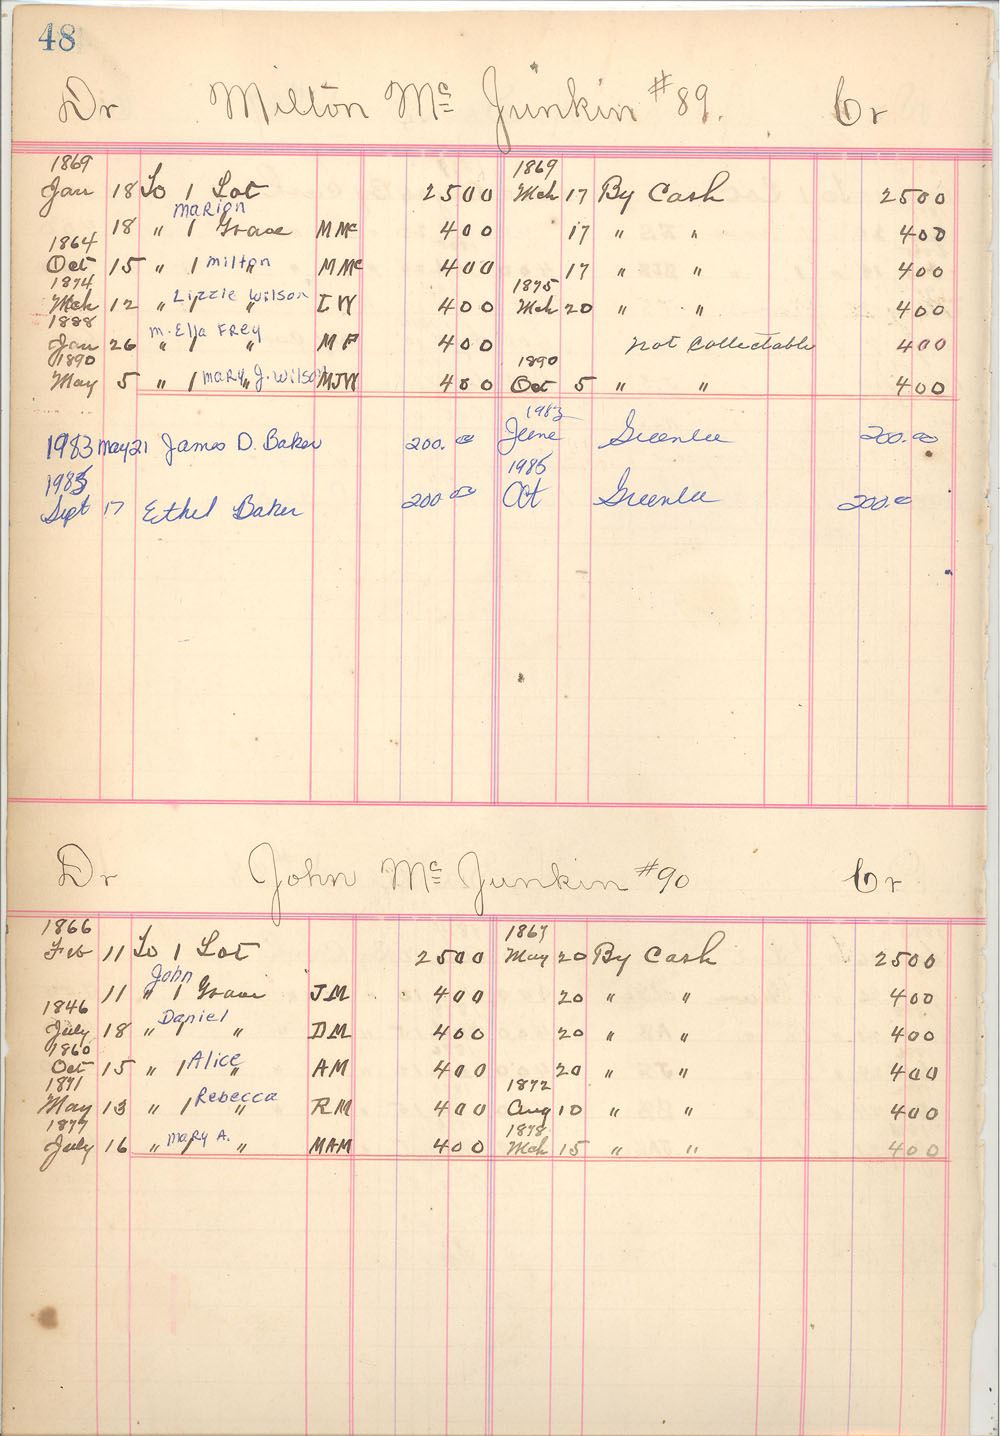 48
Dr Milton Mc Junkin #89. Cr
1869 1869
Jan 18 To 1 Lot 2500 Mch 17 By Cash 2500
Marion
18 " 1 Grave M Mc 400 17 " " 400
1864
Oct 15 " 1 Milton " M Mc 400 17 " " 400
1874 1875
Mch 12 " 1 Lizzie Wilson " LW 400 Mch 20 " " 400
1888
M. Ella Frey
Jan 26 " 1 " M F 400 Not Collectable 400
1890 1890
May 5 " 1 Mary J. Wilson " MJW 400 Oct 5 " " 400
1983
1983 May 21 James D. Baker 200.00 June Greenlee 200.00
1985 1985
Sept 17 Ethel Baker 200.00 Oct Greenlee 200.00
Dr John Mc Junkin #90 Cr
1866 1867
Feb 11 To 1 Lot 2500 May 20 By Cash 2500
John
11 " 1 Grave JM 400 20 " " 400
1846
Daniel
July 18 " 1 " DM 400 20 " " 400
1860
Oct 15 " 1 Alice " AM 400 20 " " 400
1871 1872
May 13 " 1 Rebecca " RM 400 Aug 10 " " 400
1877 1878
July 16 " 1 Mary A. " MAM 400 Mch 15 " " 400